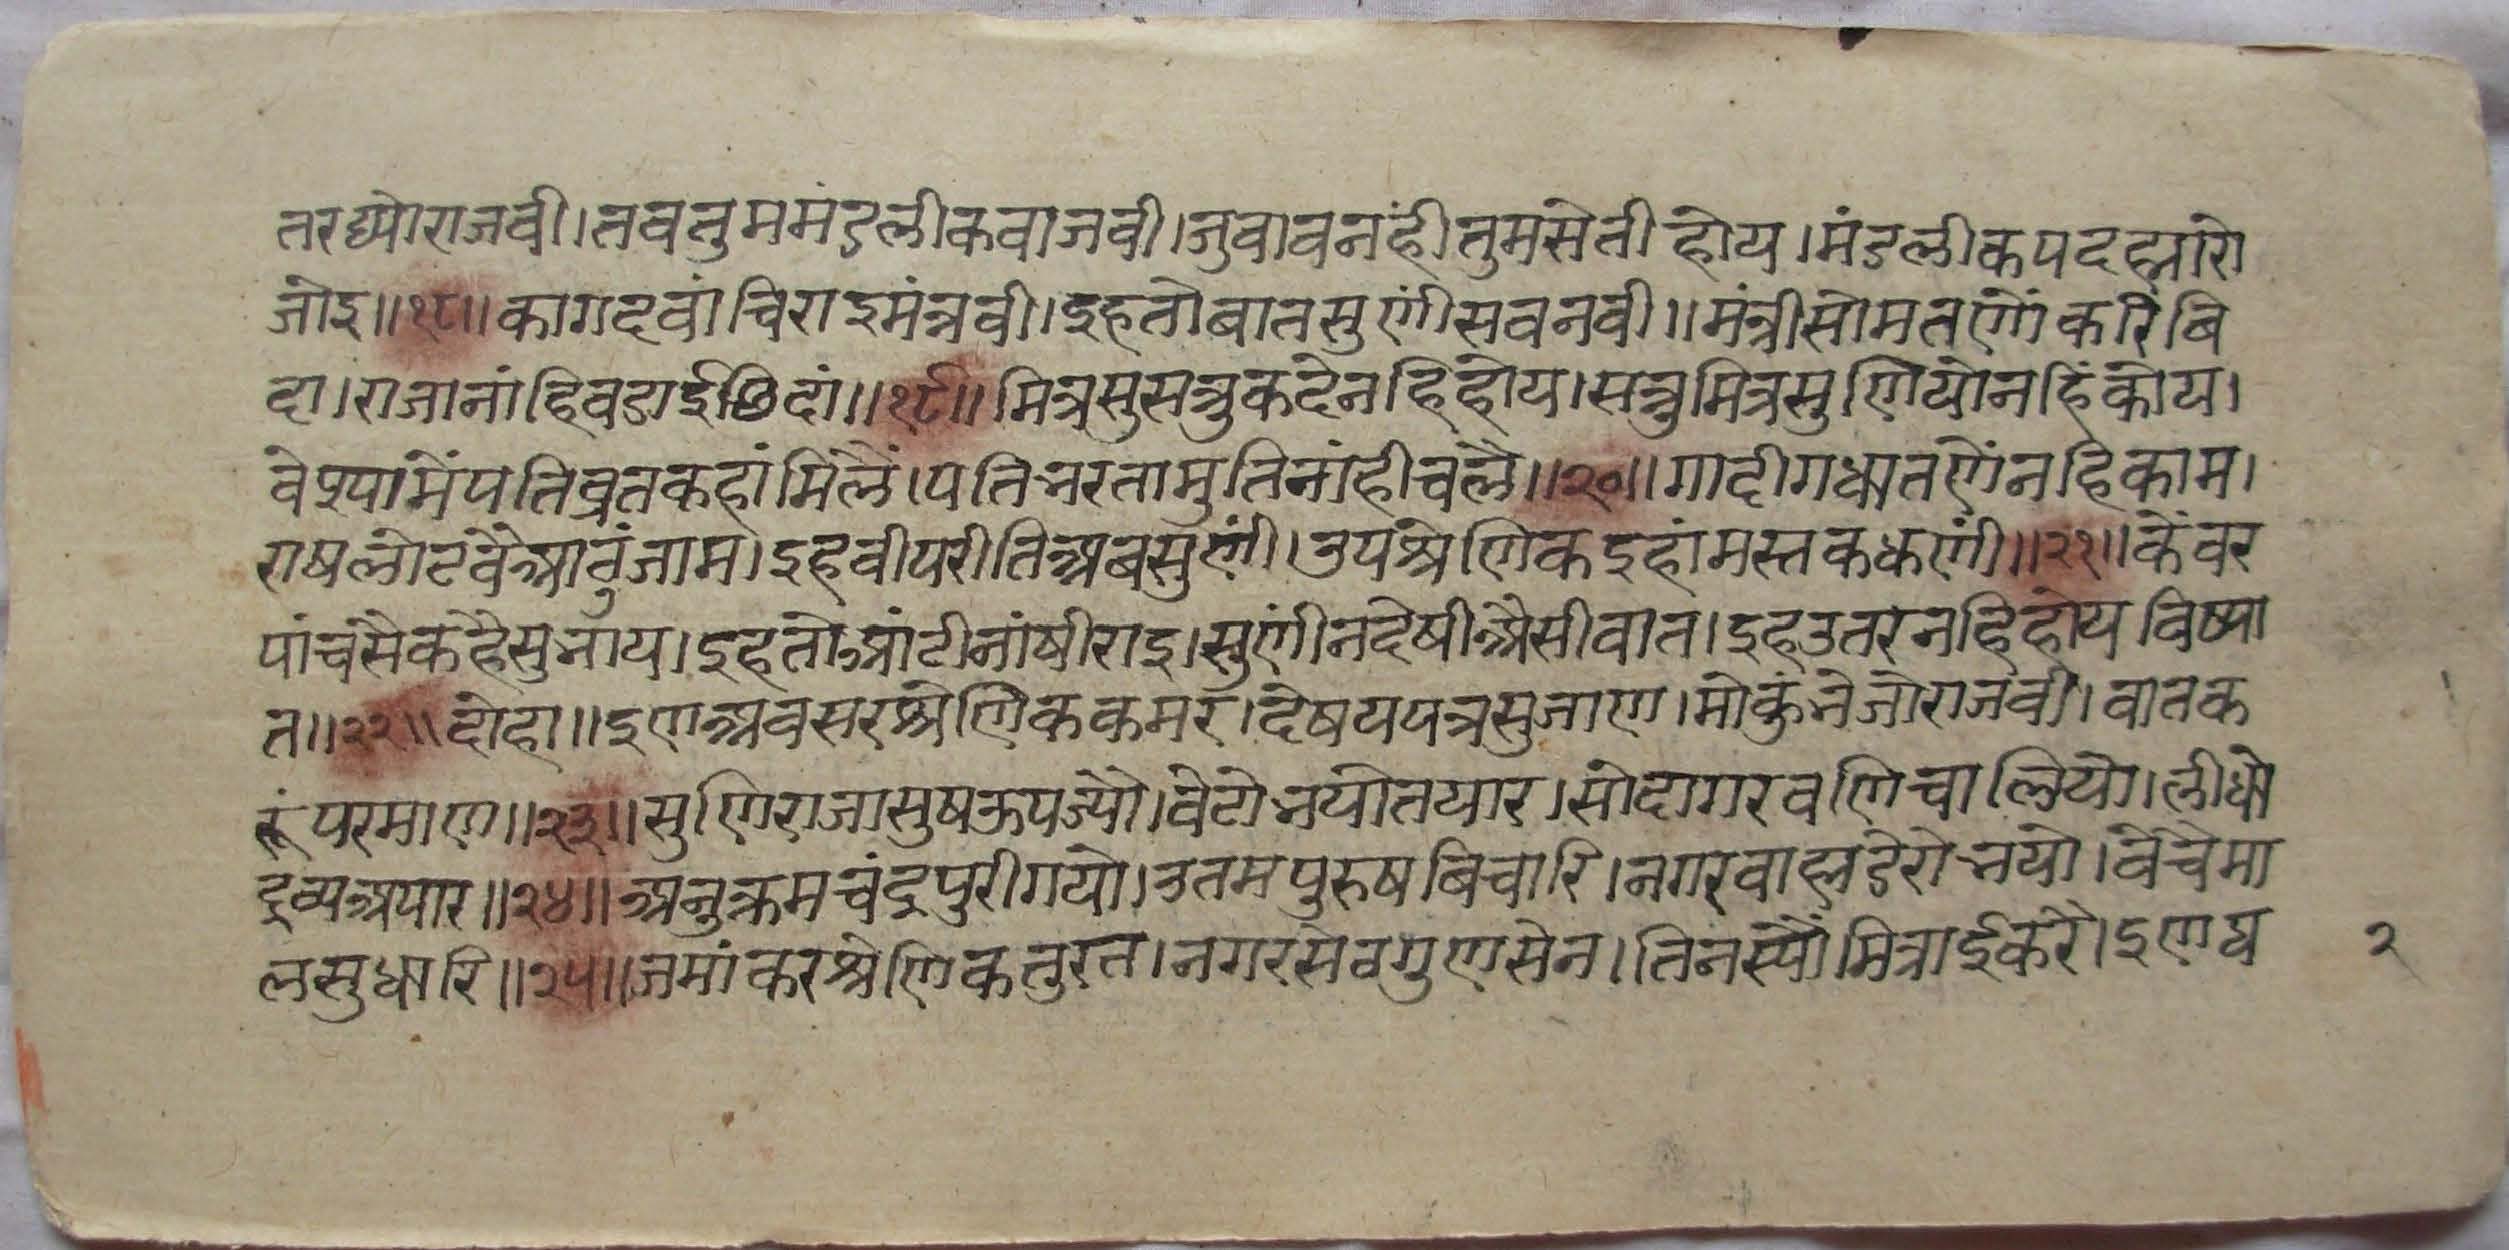 तरद्योराजवी।तबतुममंडलीकवाजवी।जुवाबनंहीतुमसेतीहोय।मंडलीकपदह्मारो
जोइ॥१८॥कागदवांचिराइमंत्रवी।इहतोबातसुणींसबनवी॥मंत्रीसोमतणोंकरिबि
दा।राजानांहिवडाईछिदां॥१९॥मित्रसुसत्रुकदेनहिहोय।सत्रुमित्रसुणियोनहिंकोय।
वेश्यामेंपतिव्रतकहांमिलैं।पतिभरतामुतिनांहीचलै॥२०॥गादीगधातणेंनहिकाम।
राषलोटवैआठुंजाम।इहवीपरीतिअबसुणीं।उपश्रेणिकइहांमस्तकधणीं॥२१॥केंवर
पांचसैकहैसुभाय।इहतोआंटीनांषीराइ।सुणींनदेषीऔसीवात।इहउतरनहिहोयविष्या
त॥२२॥दोहा॥इणअवसरश्रेणिककमर।देषययत्रसुजाण।मोकुंभेजोराजवी।वातक
रूंपरमाण॥२३॥सुणिराजासुषऊपज्यो।वेटोभयोतयार।सोदागरवणिचालियो।लीधो
द्रव्यअपार॥२४॥अनुक्रमचंद्रपुरीगयो।उतमपुरुषबिचारि।नगरवाह्लडेरोभयो।वेचैमा
लसुधारि॥२५॥जमांकरश्रेणिकतुरत।नगरसेठगुणसेन।तिनस्योंमित्राईकरै।इणघ
२